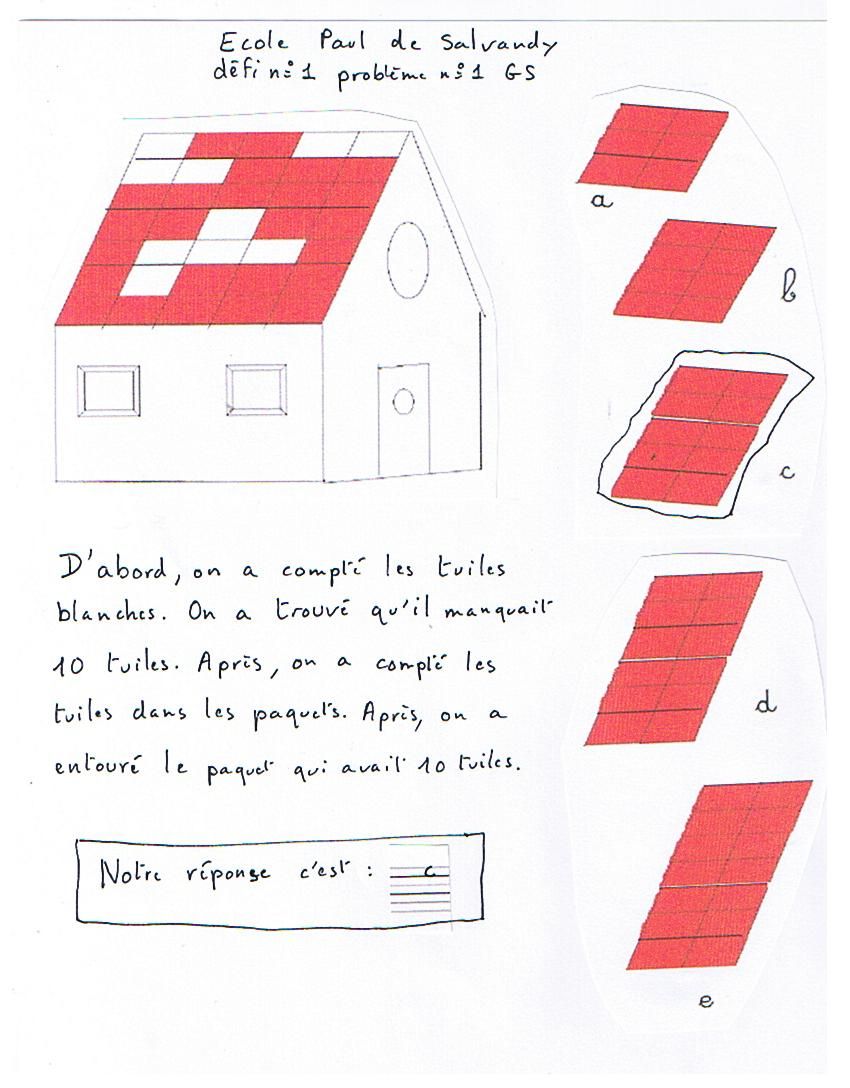 Ecole Paul de Salvandy
défi n°1 problème n°1 GS
a
b
c
d
e
D'abord, on a compté les tuiles
blanches. On a trouvé qu'il manquait
10 tuiles. Après, on a compté les
tuiles dans les paquets. Après, on a
entouré le paquet qui avait 10 tuiles.
Notre réponse c'est : c